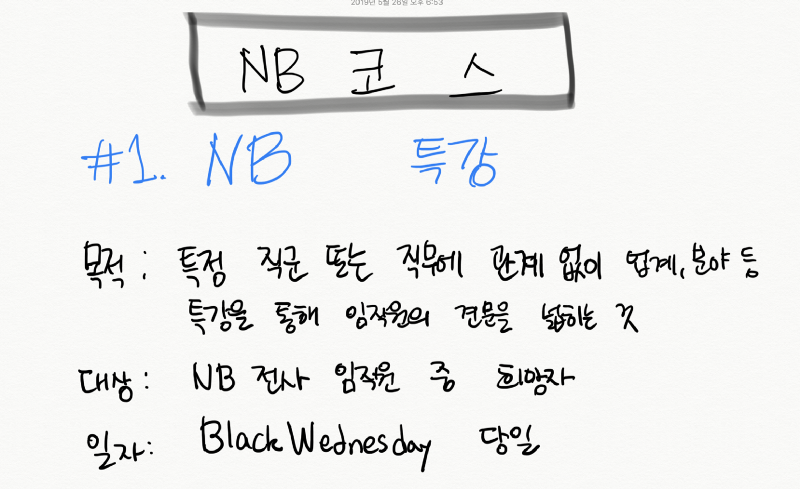 2019년 5월 26일 오후 6:53
NB 코스
#1. NB 특강
목적 : 특정 직군 또는 직무에 관계 없이 업계, 분야 등
특강을 통해 임직원의 견문을 넓히는 것
대상 : NB 전사 임직원 중 희망자
일자 : Black Wednesday 당일